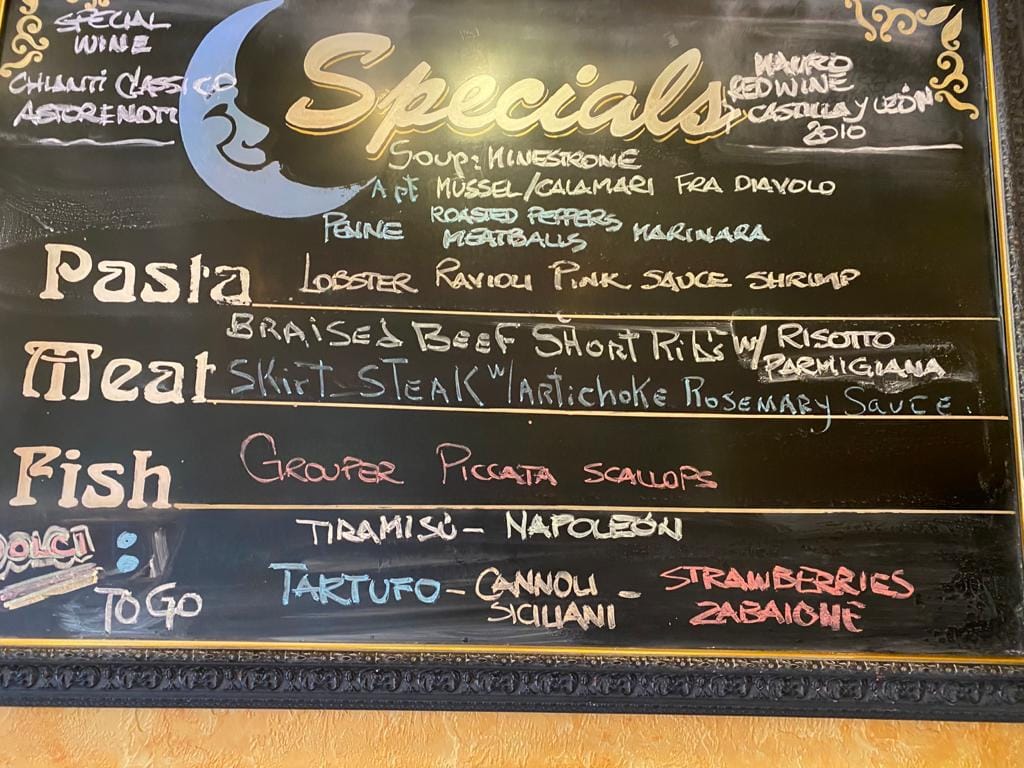 SPECIAL
WINE
CHIANTI CLASSICO
ASTORENOTI
Specials
MAURO
RED WINE
CASTILLA Y LEÓN
2010
SOUP: MINESTRONE
APT MUSSEL/CALAMARI FRA DIAVOLO
PENNE ROASTED PEPPERS MEATBALLS MARINARA
Pasta LOBSTER RAVIOLI PINK SAUCE SHRIMP
Meat BRAISED BEEF SHORT RIBS W/ RISOTTO PARMIGIANA
SKIRT STEAK W/ ARTICHOKE ROSEMARY SAUCE.
Fish GROUPER PICCATA SCALLOPS
DOLCI: TIRAMISÚ - NAPOLEÓN
TO GO TARTUFO - CANNOLI SICILIANI - STRAWBERRIES ZABAIONE